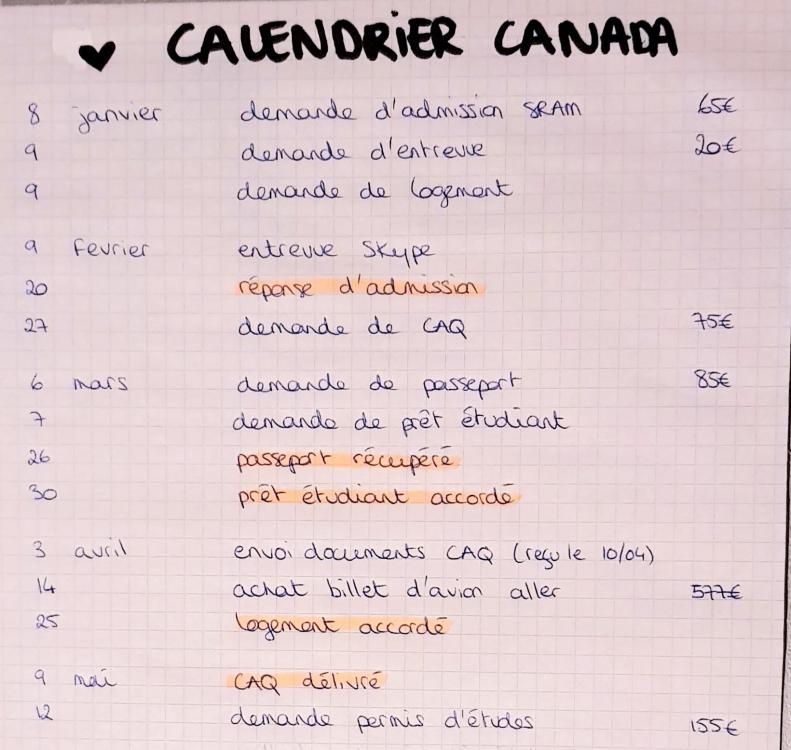 ♥ CALENDRIER CANADA
8 janvier demande d'admission SRAM 65€
9 demande d'entrevue 20€
9 demande de logement
9 fevrier entrevue Skype
20 réponse d'admission
27 demande de CAQ 75€
6 mars demande de passeport 85€
7 demande de prêt étudiant
26 passeport récupéré
30 prêt étudiant accordé
3 avril envoi documents CAQ (reçu le 10/04)
14 achat billet d'avion aller 577€
25 logement accordé
9 mai CAQ délivré
12 demande permis d'études 155€